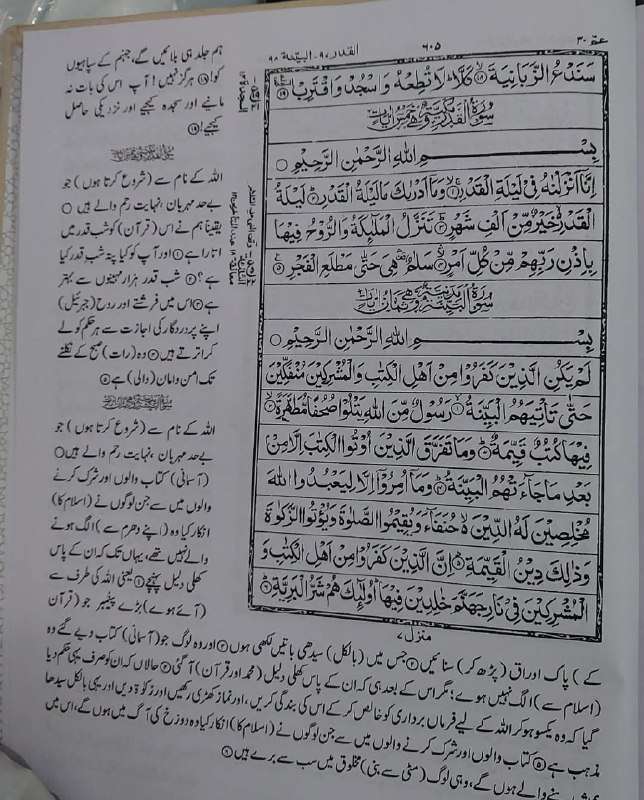 عم ٣٠
٦٠٥
القدر ٩٧-البينة ٩٨
سَنَدْعُ الزَّبَانِيَةَ ۙ﴿۱۸﴾ كَلَّا ؕ لَا تُطِعْهُ وَ اسْجُدْ وَ اقْتَرِبْ ﴿۱۹﴾
بِسْــــمِ اللّٰهِ الرَّحْمٰنِ الرَّحِيْمِ ○
اِنَّاۤ اَنْزَلْنٰهُ فِيْ لَيْلَةِ الْقَدْرِ ﴿۱﴾ وَ مَاۤ اَدْرٰىكَ مَا لَيْلَةُ الْقَدْرِ ﴿۲﴾ لَيْلَةُ
الْقَدْرِ ۙ خَيْرٌ مِّنْ اَلْفِ شَهْرٍ ﴿۳﴾ تَنَزَّلُ الْمَلٰٓىِٕكَةُ وَ الرُّوْحُ فِيْهَا
بِاِذْنِ رَبِّهِمْ مِّنْ كُلِّ اَمْرٍ ﴿۴﴾ سَلٰمٌ ۛ هِيَ حَتّٰى مَطْلَعِ الْفَجْرِ ﴿۵﴾
بِسْــــمِ اللّٰهِ الرَّحْمٰنِ الرَّحِيْمِ ○
لَمْ يَكُنِ الَّذِيْنَ كَفَرُوْا مِنْ اَهْلِ الْكِتٰبِ وَ الْمُشْرِكِيْنَ مُنْفَكِّيْنَ
حَتّٰى تَاْتِيَهُمُ الْبَيِّنَةُ ﴿۱﴾ رَسُوْلٌ مِّنَ اللّٰهِ يَتْلُوْا صُحُفًا مُّطَهَّرَةً ﴿۲﴾
فِيْهَا كُتُبٌ قَيِّمَةٌ ﴿۳﴾ وَ مَا تَفَرَّقَ الَّذِيْنَ اُوْتُوا الْكِتٰبَ اِلَّا مِنْ
بَعْدِ مَا جَآءَتْهُمُ الْبَيِّنَةُ ﴿۴﴾ وَ مَاۤ اُمِرُوْۤا اِلَّا لِيَعْبُدُوا اللّٰهَ
مُخْلِصِيْنَ لَهُ الدِّيْنَ ۙ حُنَفَآءَ وَ يُقِيْمُوا الصَّلٰوةَ وَ يُؤْتُوا الزَّكٰوةَ
وَ ذٰلِكَ دِيْنُ الْقَيِّمَةِ ﴿۵﴾ اِنَّ الَّذِيْنَ كَفَرُوْا مِنْ اَهْلِ الْكِتٰبِ وَ
الْمُشْرِكِيْنَ فِيْ نَارِ جَهَنَّمَ خٰلِدِيْنَ فِيْهَا ؕ اُولٰٓىِٕكَ هُمْ شَرُّ الْبَرِيَّةِ ﴿۶﴾
منزل ۷
ہم جلد ہی بلائیں گے، جہنم کے سپاہیوں
کو! ۱۸ ہرگز نہیں! آپ اس کی بات نہ
مانیے اور سجدہ کیجیے اور نزدیکی حاصل
کیجیے! ۱۹
اللہ کے نام سے (شروع کرتا ہوں) جو
بےحد مہربان، نہایت رحم والے ہیں ○
یقیناً ہم نے اس (قرآن) کو شب قدر میں
اتارا ہے ۱ اور آپ کو کیا پتہ شب قدر کیا
ہے؟ ۲ شب قدر ہزار مہینوں سے بہتر
ہے ۳ اس میں فرشتے اور روح (جبرئیل)
اپنے پروردگار کی اجازت سے ہر حکم کو لے
کر اترتے ہیں ۴ وہ (رات) صبح کے نکلنے
تک امن وامان (والی) ہے ۵
اللہ کے نام سے (شروع کرتا ہوں) جو
بےحد مہربان، نہایت رحم والے ہیں ○
(آسمانی) کتاب والوں اور شرک کرنے
والوں میں سے جن لوگوں نے (اسلام کا)
انکار کیا وہ (اپنے دھرم سے) الگ ہونے
والے نہیں تھے، یہاں تک کہ ان کے پاس
کھلی دلیل پہنچے ۱ یعنی اللہ کی طرف سے
(آئے ہوے) بڑے پیغمبر جو (قرآن
کے) پاک اوراق (پڑھ کر) سنائیں ۲ جس میں (بالکل) سیدھی باتیں لکھی ہوں ۳ اور وہ لوگ جو (آسمانی) کتاب دیے گئے وہ
(اسلام سے) الگ نہیں ہوے؛ مگر اس کے بعد ہی کہ ان کے پاس کھلی دلیل (محمد اور قرآن) آگئی ۴ حالاں کہ ان کو صرف یہی حکم دیا
گیا کہ وہ یکسو ہو کر اللہ کے لیے فرماں برداری کو خالص کر کے اس کی بندگی کریں، اور نماز کھڑی رکھیں اور زکوٰۃ دیں اور یہی بالکل سیدھا
مذہب ہے ۵ کتاب والوں اور شرک کرنے والوں میں سے جن لوگوں نے (اسلام کا) انکار کیا وہ دوزخ کی آگ میں ہوں گے، اس میں
والے ہوں گے، وہی لوگ (مٹی سے بنی) مخلوق میں سب سے برے ہیں ۶